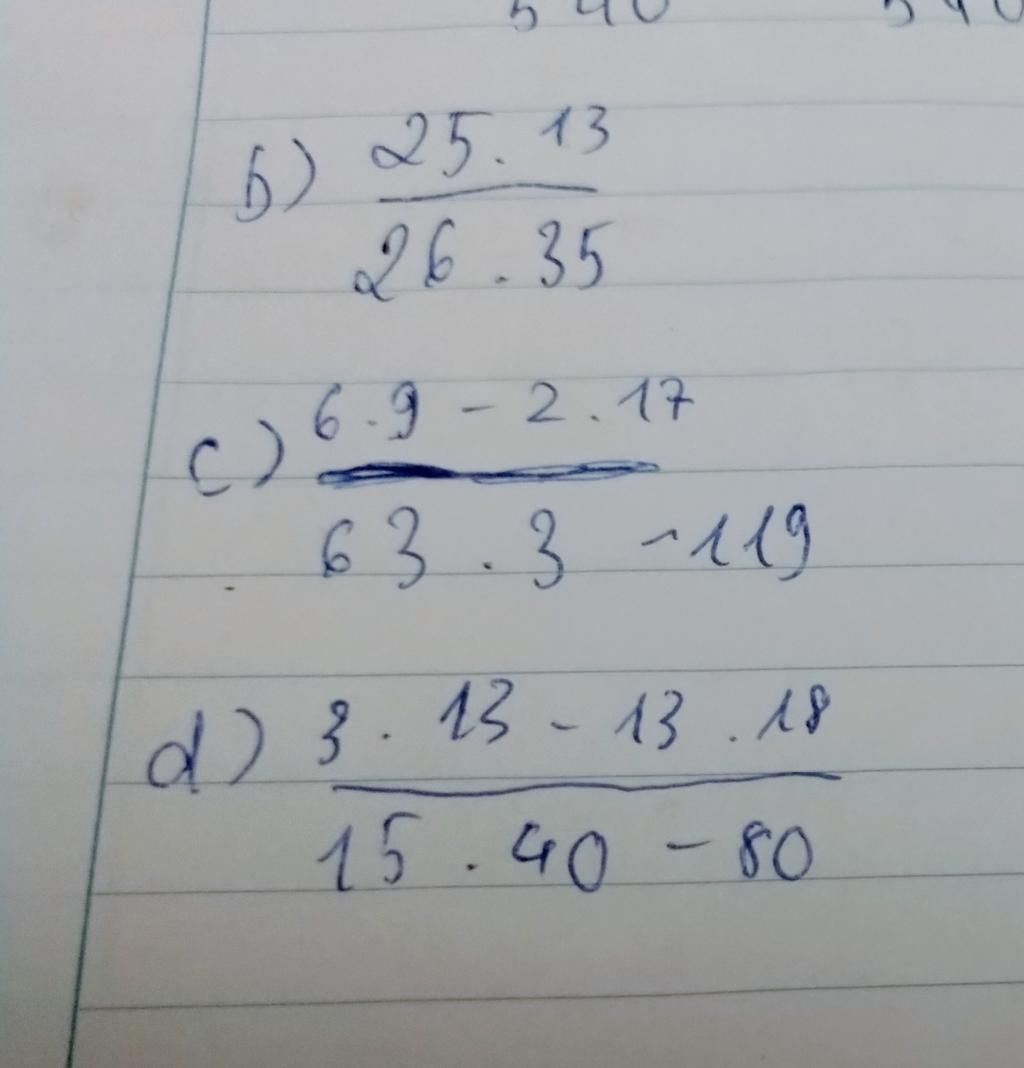 b) 25 . 13
26 . 35
c) 6 . 9 - 2 . 17
63 . 3 - 119
d) 3 . 13 - 13 . 18
15 . 40 - 80